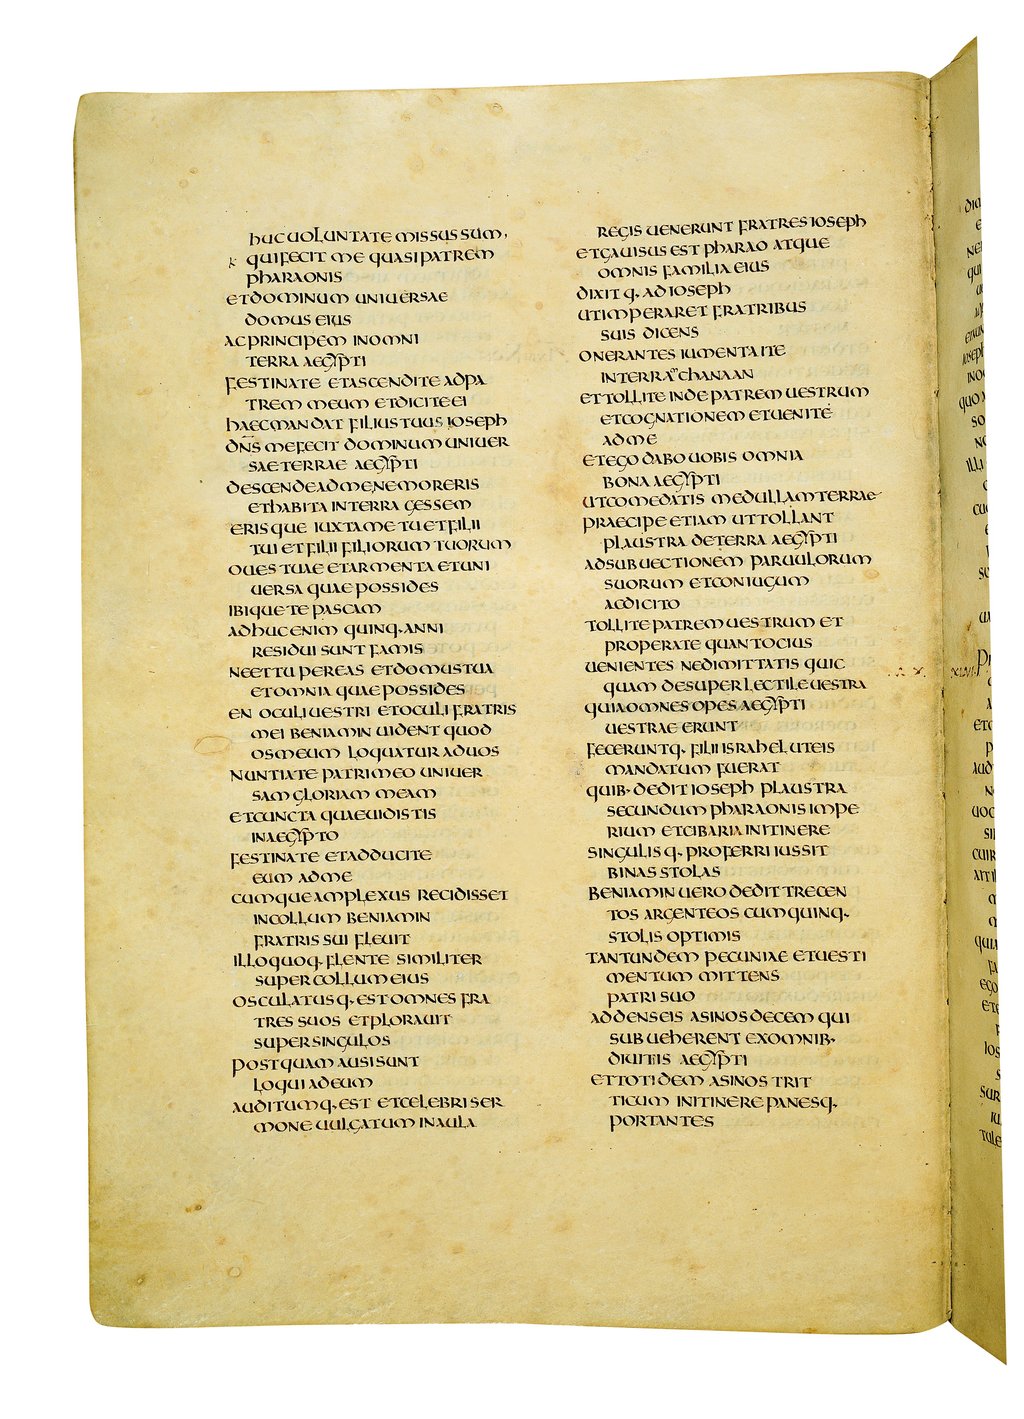 huc uoluntate missus sum,
qui fecit me quasi patrem
pharaonis
et dominum uniuersae
domus eius
ac principem in omni
terra aegypti
festinate et ascendite ad pa
trem meum et dicite ei
haec mandat filius tuus ioseph
dn̄s me fecit dominum uniuer
sae terrae aegypti
descende ad me, ne moreris
et habita in terra gessem
erisque iuxta me tu et filii
tui et filii filiorum tuorum
oues tuae et armenta et uni
uersa quae possides
ibique te pascam
adhuc enim quinq. anni
residui sunt famis
ne et tu pereas et domus tua
et omnia quae possides
en oculi uestri et oculi fratris
mei beniamin uident quod
os meum loquatur ad uos
nuntiate patri meo uniuer
sam gloriam meam
et cuncta quae uidistis
in aegypto
festinate et adducite
eum ad me
cumque amplexus recidisset
in collum beniamin
fratris sui fleuit
illo quoq. flente similiter
super collum eius
osculatusq. est omnes fra
tres suos et plorauit
super singulos
post quam ausi sunt
loqui ad eum
auditumq. est et celebri ser
mone uulgatum in aula
regis uenerunt fratres ioseph
et gauisus est pharao atque
omnis familia eius
dixitq. ad ioseph
ut imperaret fratribus
suis dicens
onerantes iumenta ite
in terra chanaan
et tollite inde patrem uestrum
et cognationem et uenite
ad me
et ego dabo uobis omnia
bona aegypti
ut comedatis medullam terrae
praecipe etiam ut tollant
plaustra de terra aegypti
ad subuectionem paruulorum
suorum et coniugum
ac dicito
tollite patrem uestrum et
properate quantocius
uenientes ne dimittatis quic
quam de supellectile uestra
quia omnes opes aegypti
uestrae erunt
feceruntq. filii israhel ut eis
mandatum fuerat
quib. dedit ioseph plaustra
secundum pharaonis impe
rium et cibaria in itinere
singulisq. proferri iussit
binas stolas
beniamin uero dedit trecen
tos argenteos cum quinq.
stolis optimis
tantundem pecuniae et uesti
mentum mittens
patri suo
addens eis asinos decem qui
subueherent ex omnib.
diuitiis aegypti
et totidem asinos trit
ticum in itinere panesq.
portantes